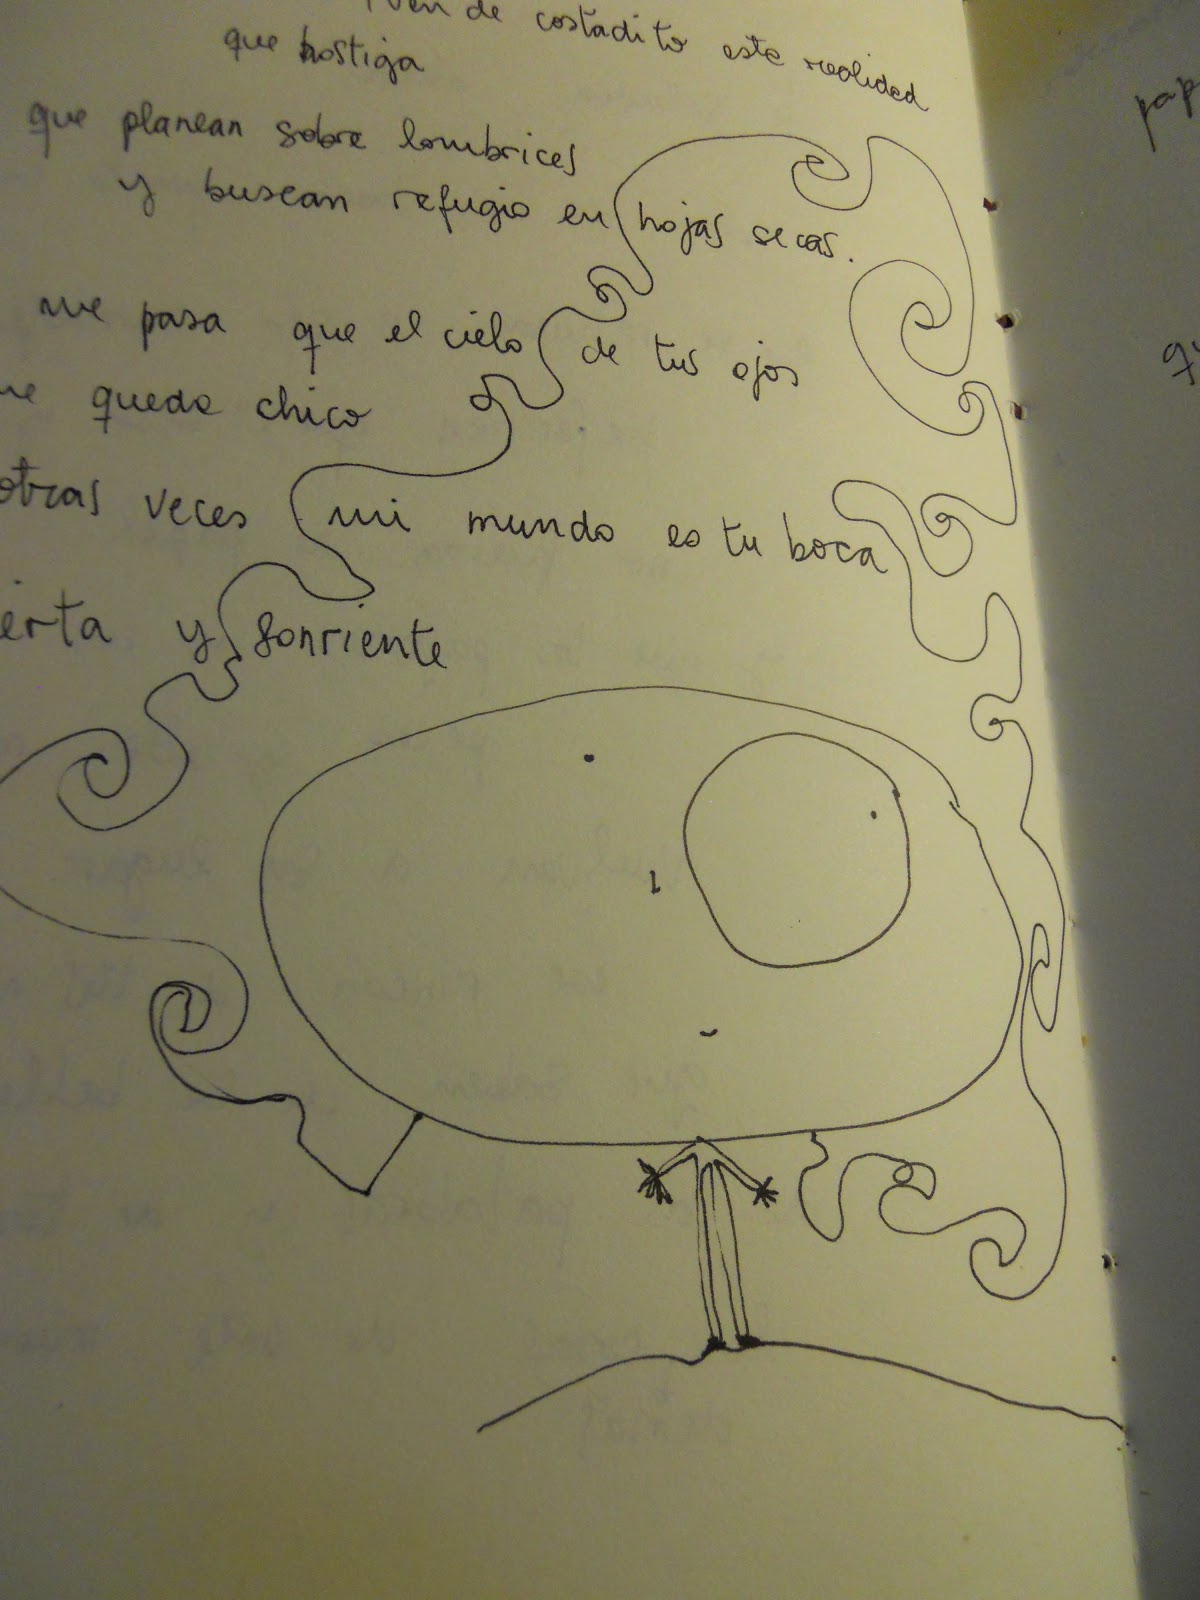 ven de costadito esta realidad
que hostiga
que planean sobre lombrices
y buscan refugio en hojas secas.
me pasa que el cielo de tus ojos
me queda chico
otras veces mi mundo es tu boca
ierta y sonriente
pap